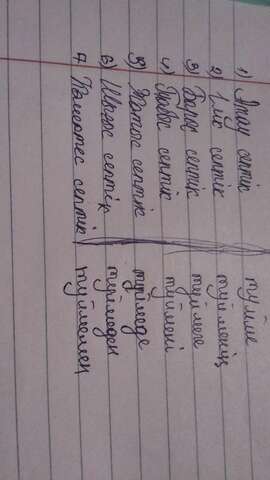 1) Атау септік түйме
2) Ілік септік түйменің
3) Барыс септік түймеге
4) Табыс септік түймені
5) Жатыс септік түймеде
6) Шығыс септік түймеден
7. Көмектес септік түймемен